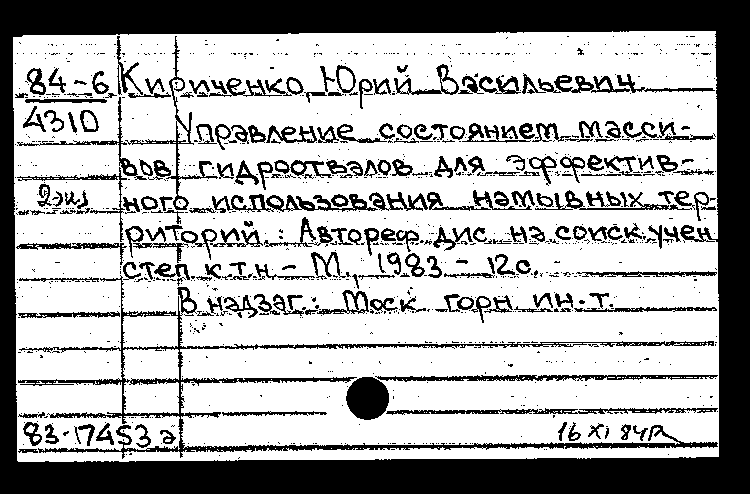 84-6 Кириченко, Юрий Васильевич
4310 Управление состоянием масси-
вов гидроотвалов для эффектив-
2 экз ного использования намывных тер-
риторий.: Автореф дис на соиск. учен
степ к.т.н - М., 1983 - 12с.
В надзаг.: Моск горн ин.-т.
83-17453 а 16 XI 84